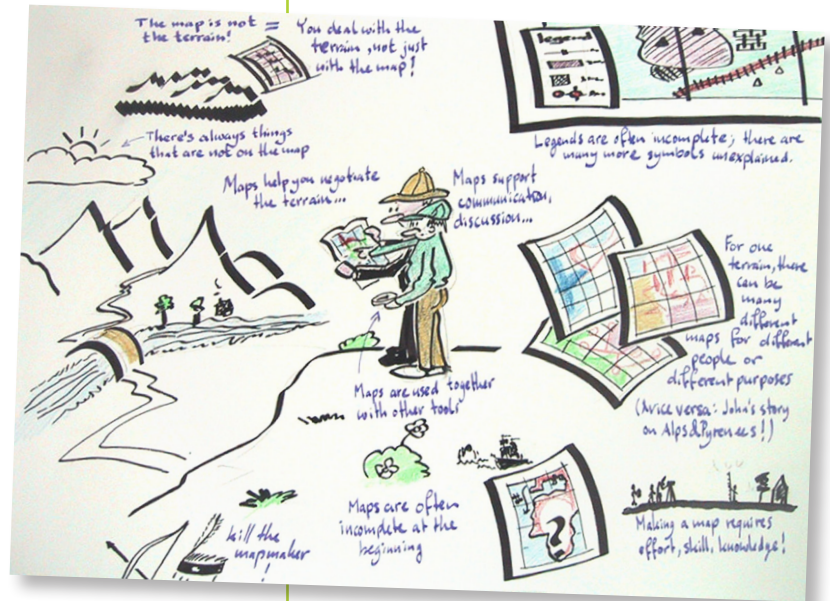 The map is not
the terrain!
=
You deal with the
terrain, not just
with the map!
legend
There's always things
that are not on the map
Legends are often incomplete; there are
many more symbols unexplained.
Maps help you negotiate
the terrain...
Maps support
communication,
discussion...
For one
terrain, there
can be
many
different
maps for different
people or
different purposes
(Avice versa: John's story
on Alps&Pyrenees!)
Maps are used together
with other tools
Maps are often
incomplete at the
beginning
?
kill the
mapmaker
!
Making a map requires
effort, skill, knowledge!